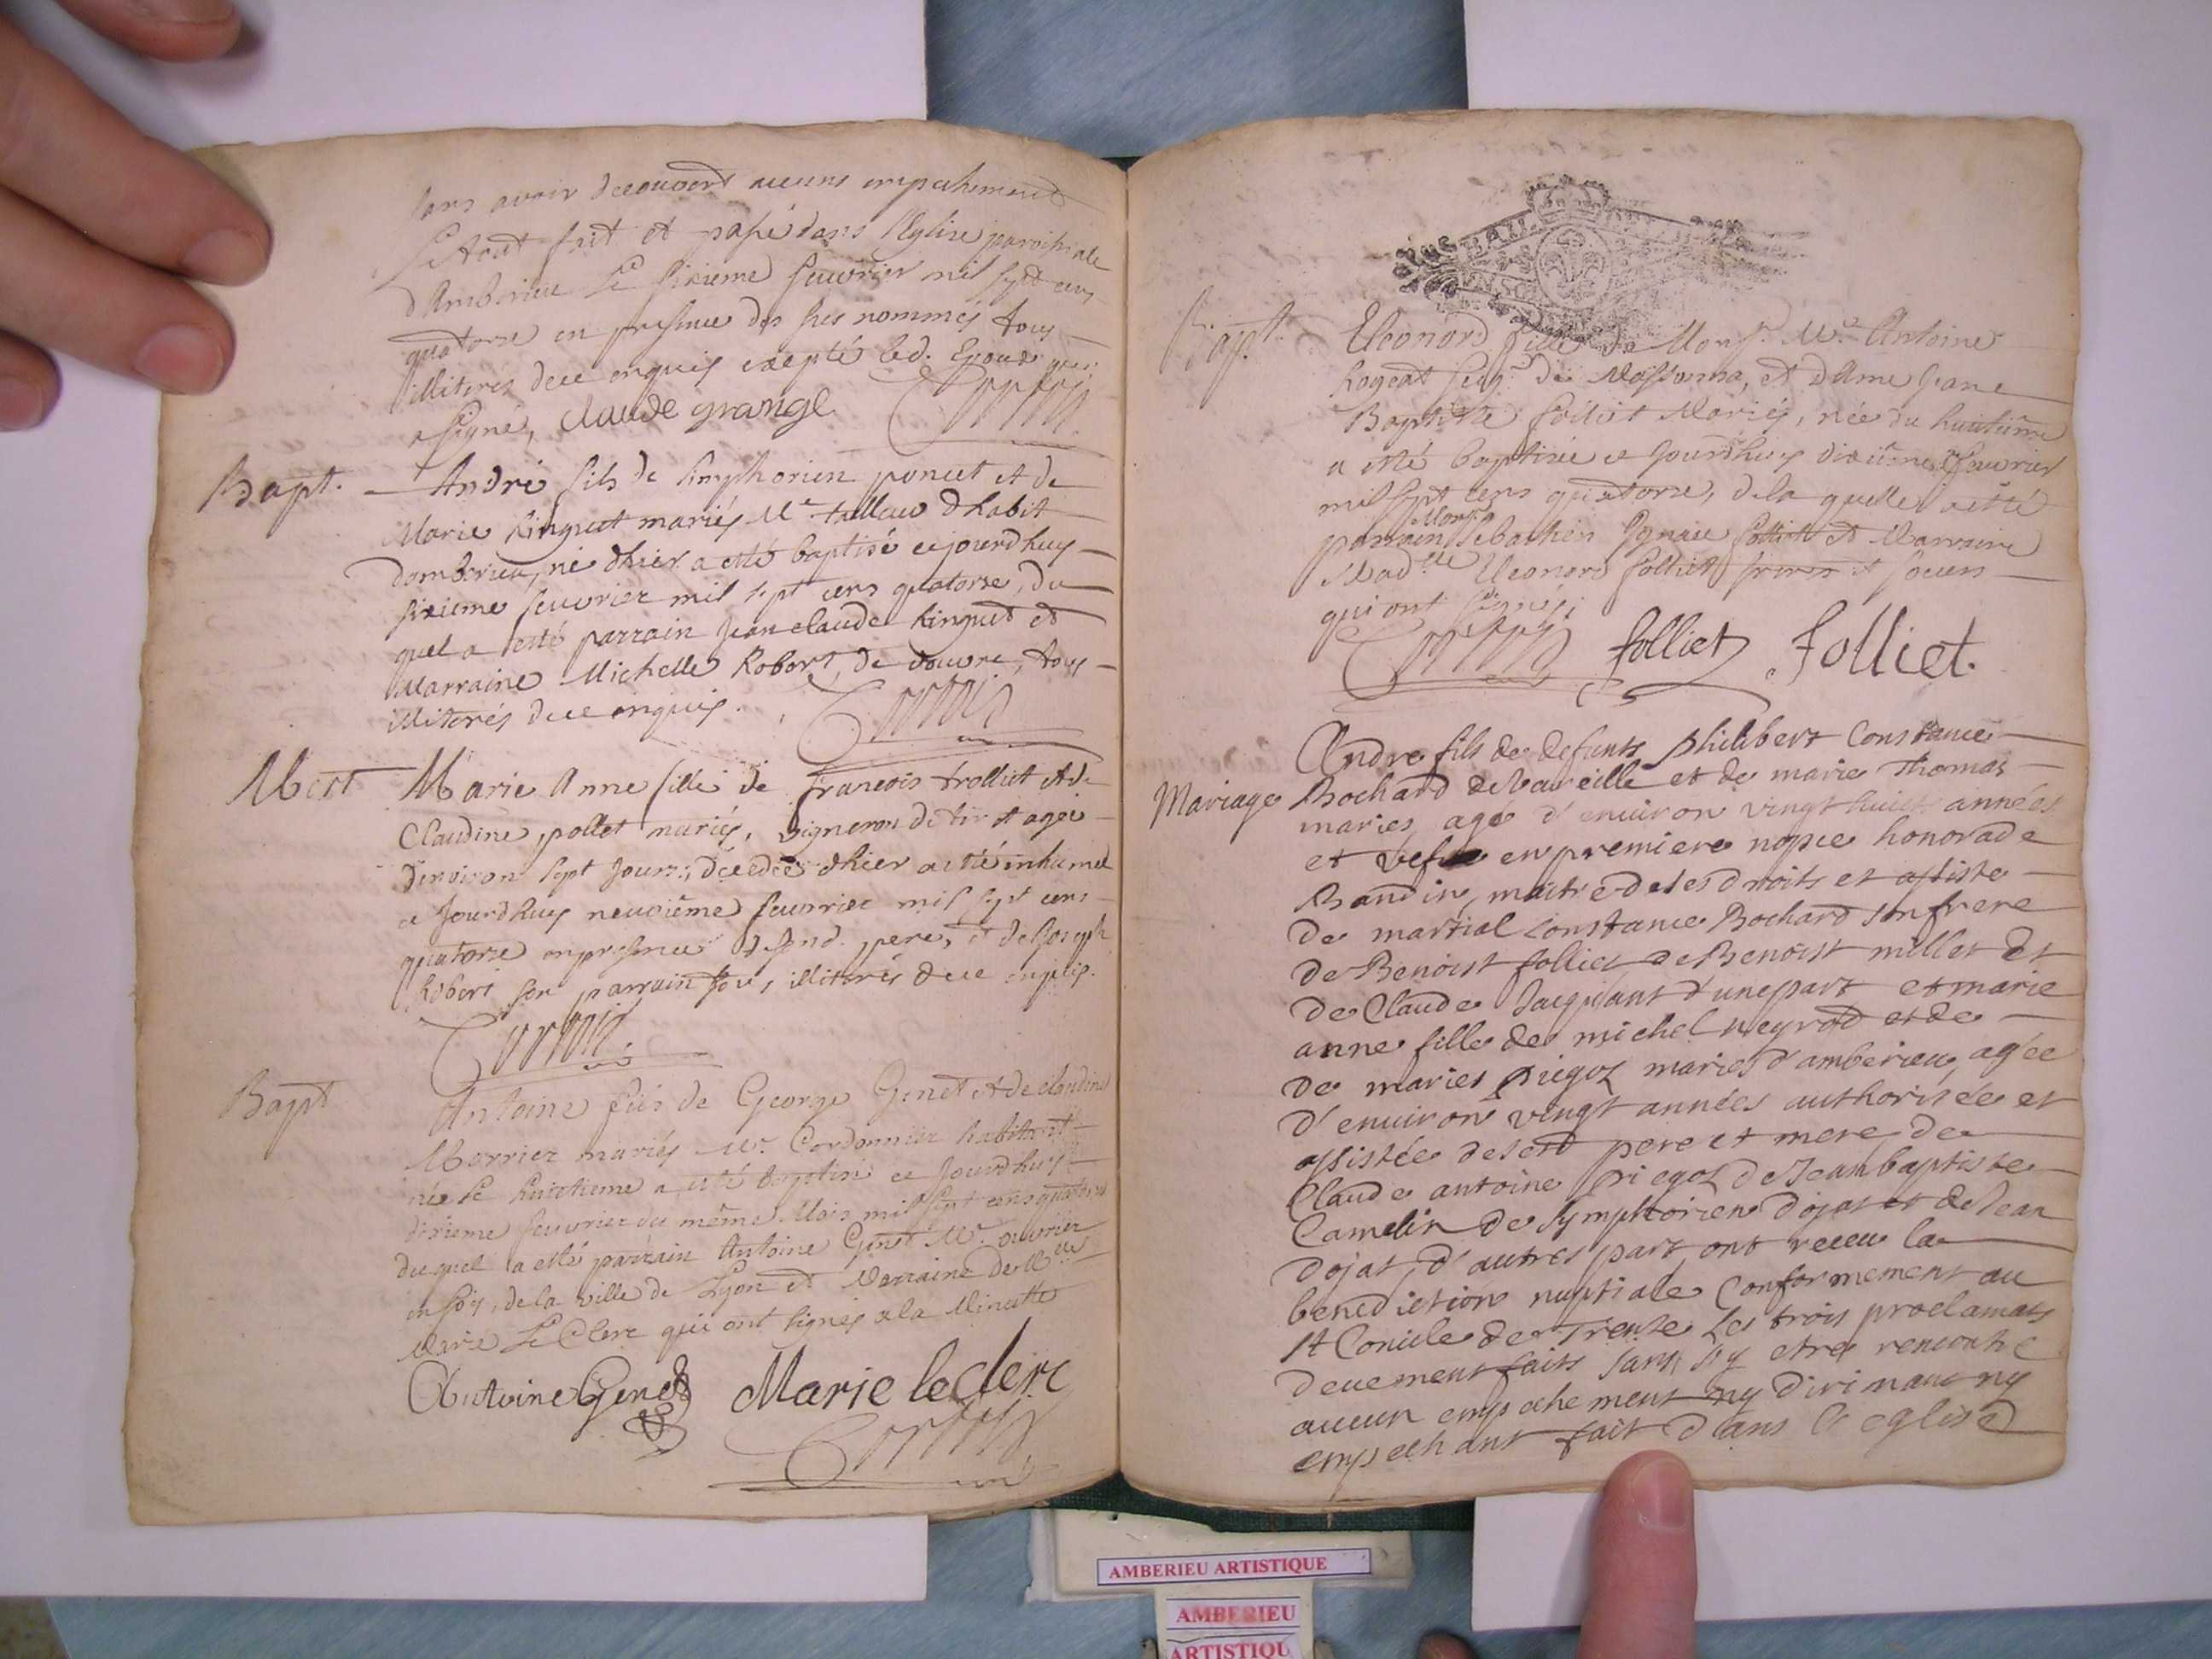 sans avoir decouvert aucuns empechement
Le tout fait et passé dans l'Eglise paroissiale
d'Amberieu le sixieme feuvrier mil sept cens
quatorse en presence des sus nommés tous
illiterés de ce enquis excepté led. Epoux qui
a signé, claude grangé
Bapt. André fils de Simphorien poncet et de
Marie Ringuet mariés Me tailleur d'habit
d'amberieu, né d'hier a esté baptisé ce jourdhuy
sixieme feuvrier mil sept cens quatorse, du
quel a esté parrain Jean claude Ringuet et
Marraine Michelle Robert, de douvre, tous
illiterés de ce enquis.
Mort Marie Anne fille de francois trolliet et de
Claudine pollet mariés, vigneron de tiret agée
d'environ sept jours, decedée d'hier a esté inhumée
ce jourdhuy neuvième feuvrier mil sept cens
quatorse en presence de sond. pere, et de Joseph
Robert son parrain tous illiterés de ce enquis.
Bapt Antoine fils de George Genet et de claudine
Marrier mariés Me. Cordonnier habitant
né le huictieme a esté baptisé ce jourdhuy
dixieme feuvrier du même Mois mil sept cens quatorse
du quel a esté parrain Antoine Genet Me. ouvrier
en soy, de la ville de Lyon et Marraine de
Marie Le Clerc qui ont signés a la Minutte
Antoine Genet Marie le clerc
Bapt. Eleonord fille de Monsr. Me. Antoine
Rogeat seigr. de Massonna, et dame Jeane
Baptiste folliet Mariés, née du huictième
a esté baptisée ce jourdhuy dixième feuvrier
mil sept cens quatorse, de la quelle a esté
Monsr
parrain Sebastien Ignace folliet et Marraine
Madlle Eleonord folliet freres et soeurs
qui ont signés;
folliet folliet.
Andre fils de defunts philibert Constance
Mariage Bochard de Vareille et de marie Thomas
maries, agé d'enuiron vingt huict années
et vefue en premiere nopce honorade
Bandin, maitre de ses droits et assiste
de martial Constance Bochard son frere
de Benoist folliet de Benoist millet et
de Claude Jacquant d'une part et marie
anne fille de michel neyrod et de
de marie prigoz maries d'amberieu, agée
d'enuiron vingt années authorisée et
assistée desesd pere et mere, de
Claude antoine prigoz de Jean baptiste
Camelin de Symphorien dojat et de Jean
dojat, d'autres part, ont receu la
benediction nuptiale Conformement au
St Concile de Trente les trois proclamats
deuement faits sans s'y etre rencontre
aucun empechement ny dirimant ny
empechant fait dans l'eglise
AMBERIEU ARTISTIQUE
AMBERIEU
ARTISTIQU